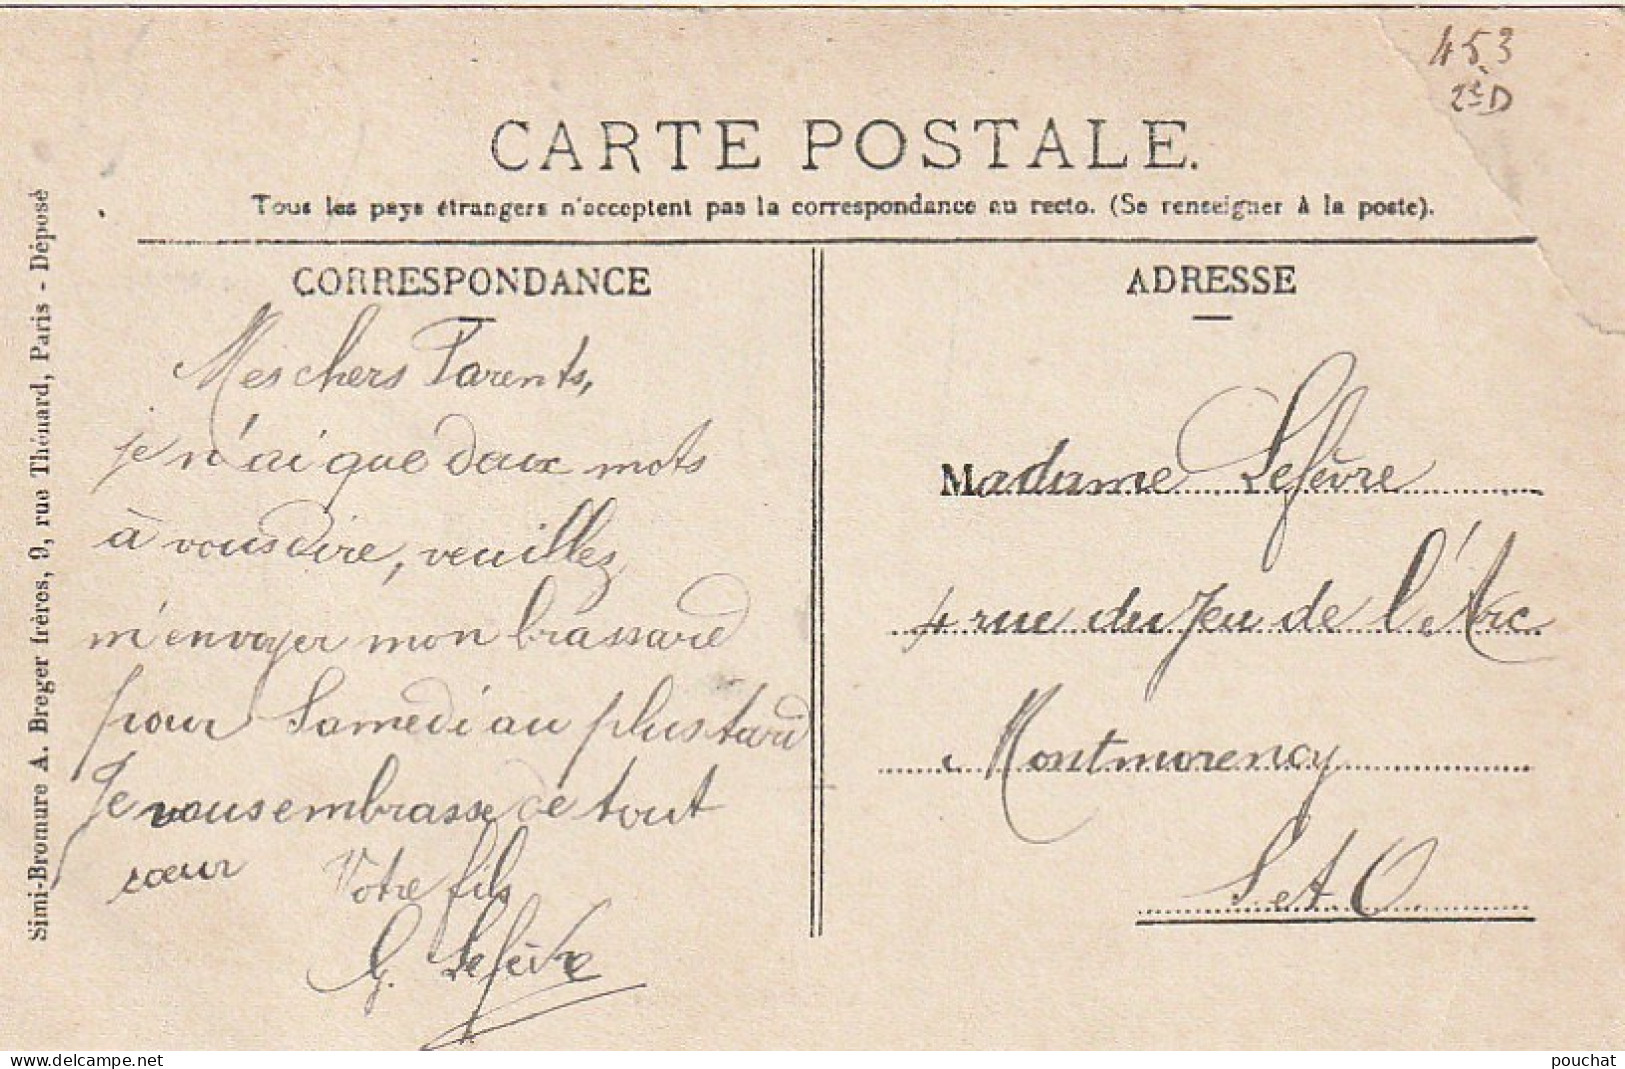 453
2è D
CARTE POSTALE.
Tous les pays étrangers n'acceptent pas la correspondance au recto. (Se renseigner à la poste).
CORRESPONDANCE
Mes chers Parents,
je n'ai que deux mots
à vous dire, veuillez
m'envoyer mon brassard
pour Samedi au plus tard
Je vous embrasse de tout
cœur Votre fils
G. Lefèvre
ADRESSE
Madame Lefèvre
4 rue du Jeu de l'Arc
Montmorency
S. et. O.
Simi-Bromure A. Breger frères, 9, rue Thénard, Paris - Déposé
www.delcampe.net
pouchat